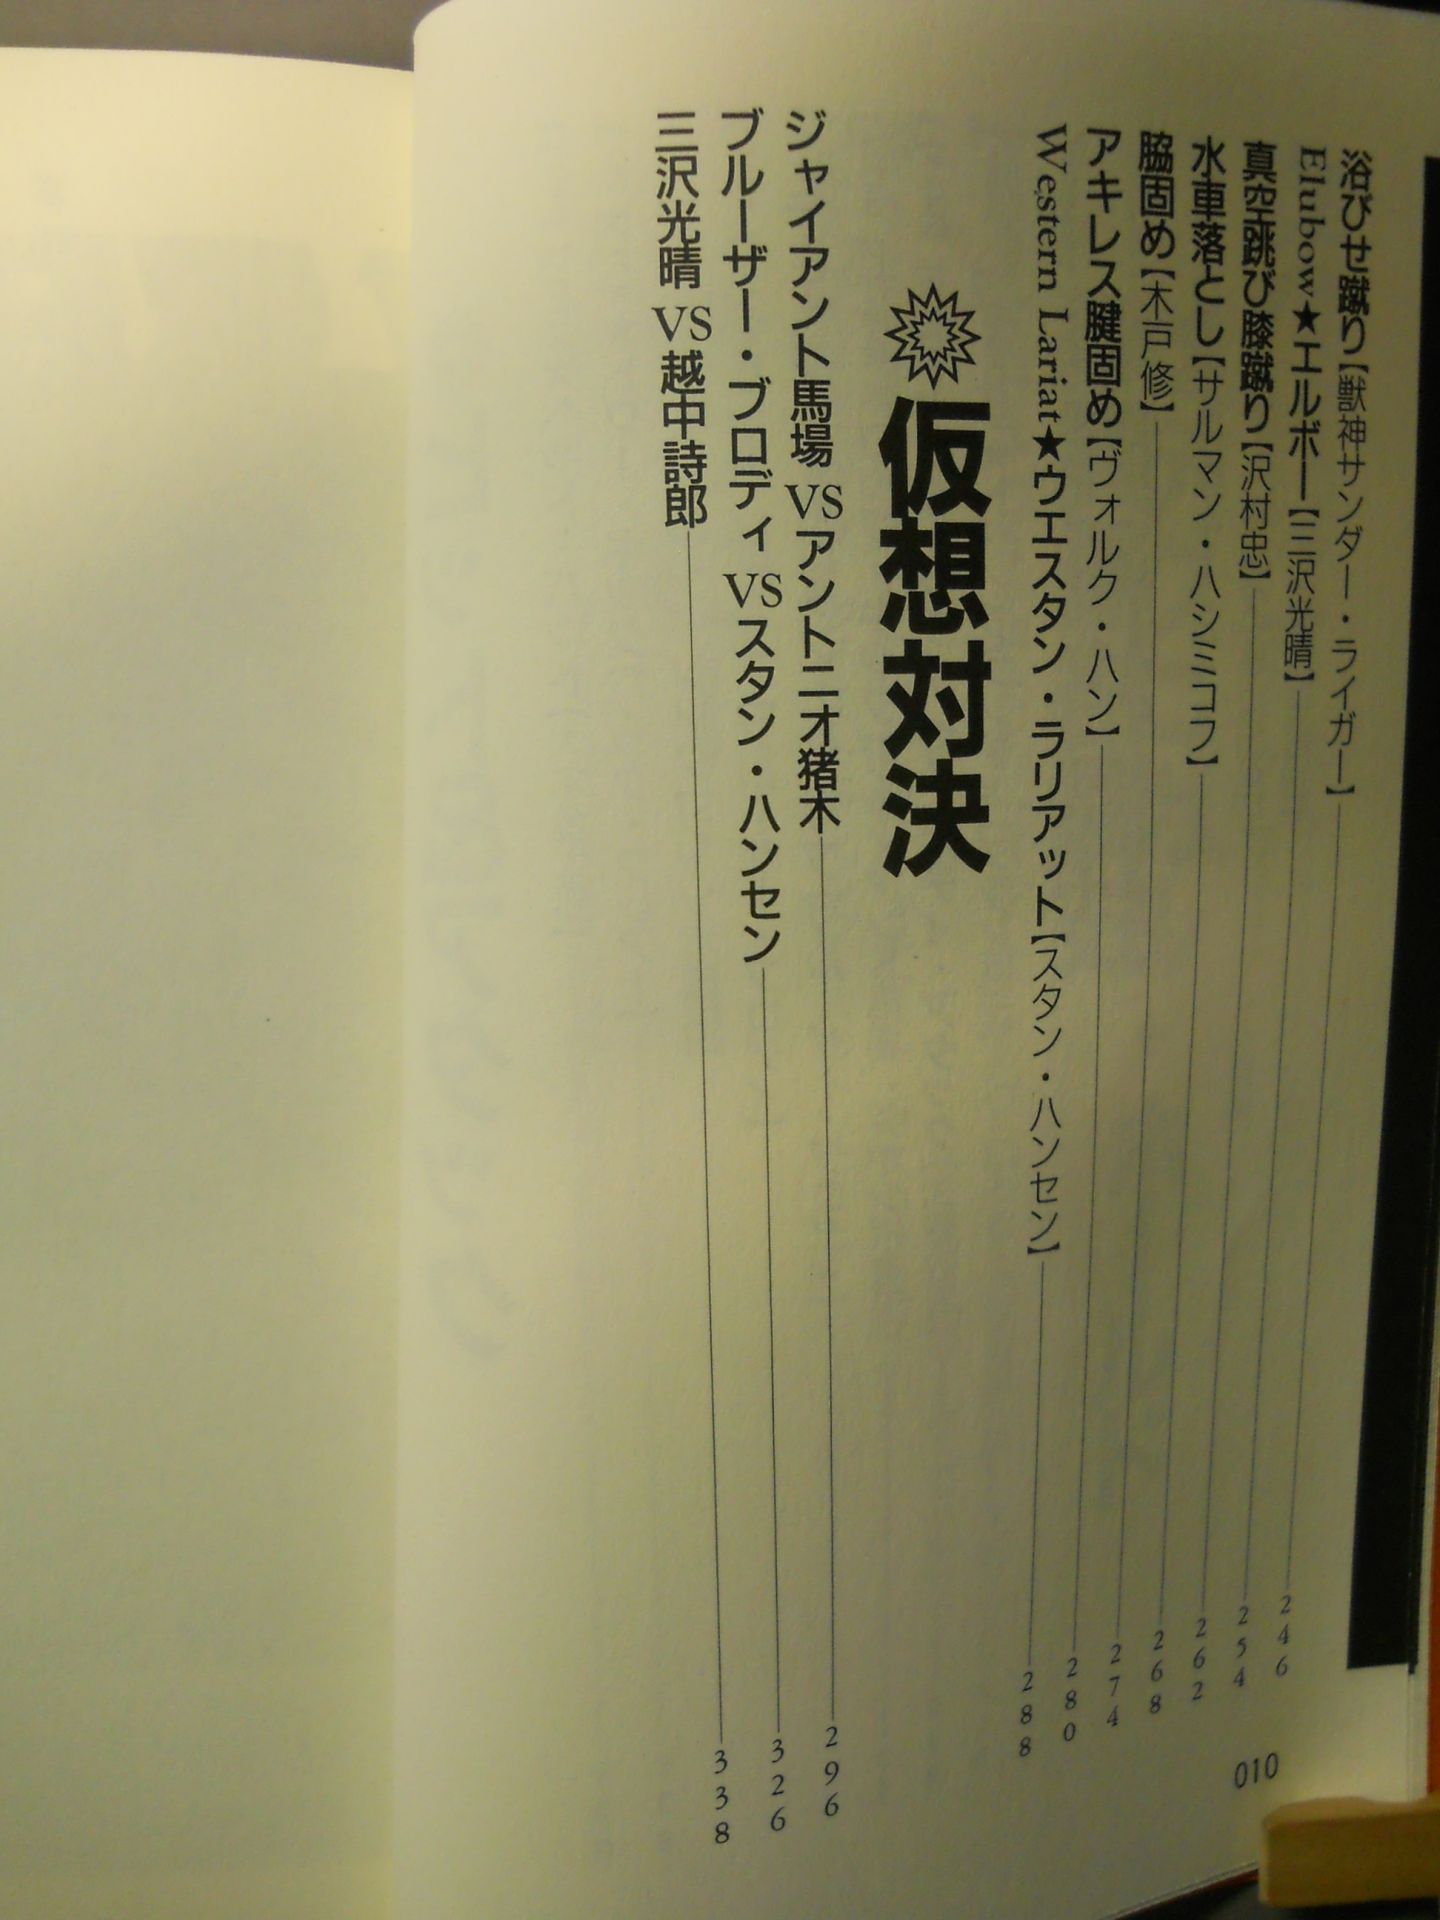 浴びせ蹴り【獣神サンダー・ライガー】246
Elubow★エルボー【三沢光晴】254
真空跳び膝蹴り【沢村忠】262
水車落とし【サルマン・ハシミコフ】268
脇固め【木戸修】274
アキレス腱固め【ヴォルク・ハン】280
Western Lariat★ウエスタン・ラリアット【スタン・ハンセン】288
仮想対決
ジャイアント馬場 VS アントニオ猪木 296
ブルーザー・ブロディ VS スタン・ハンセン 326
三沢光晴 VS 越中詩郎 338
010